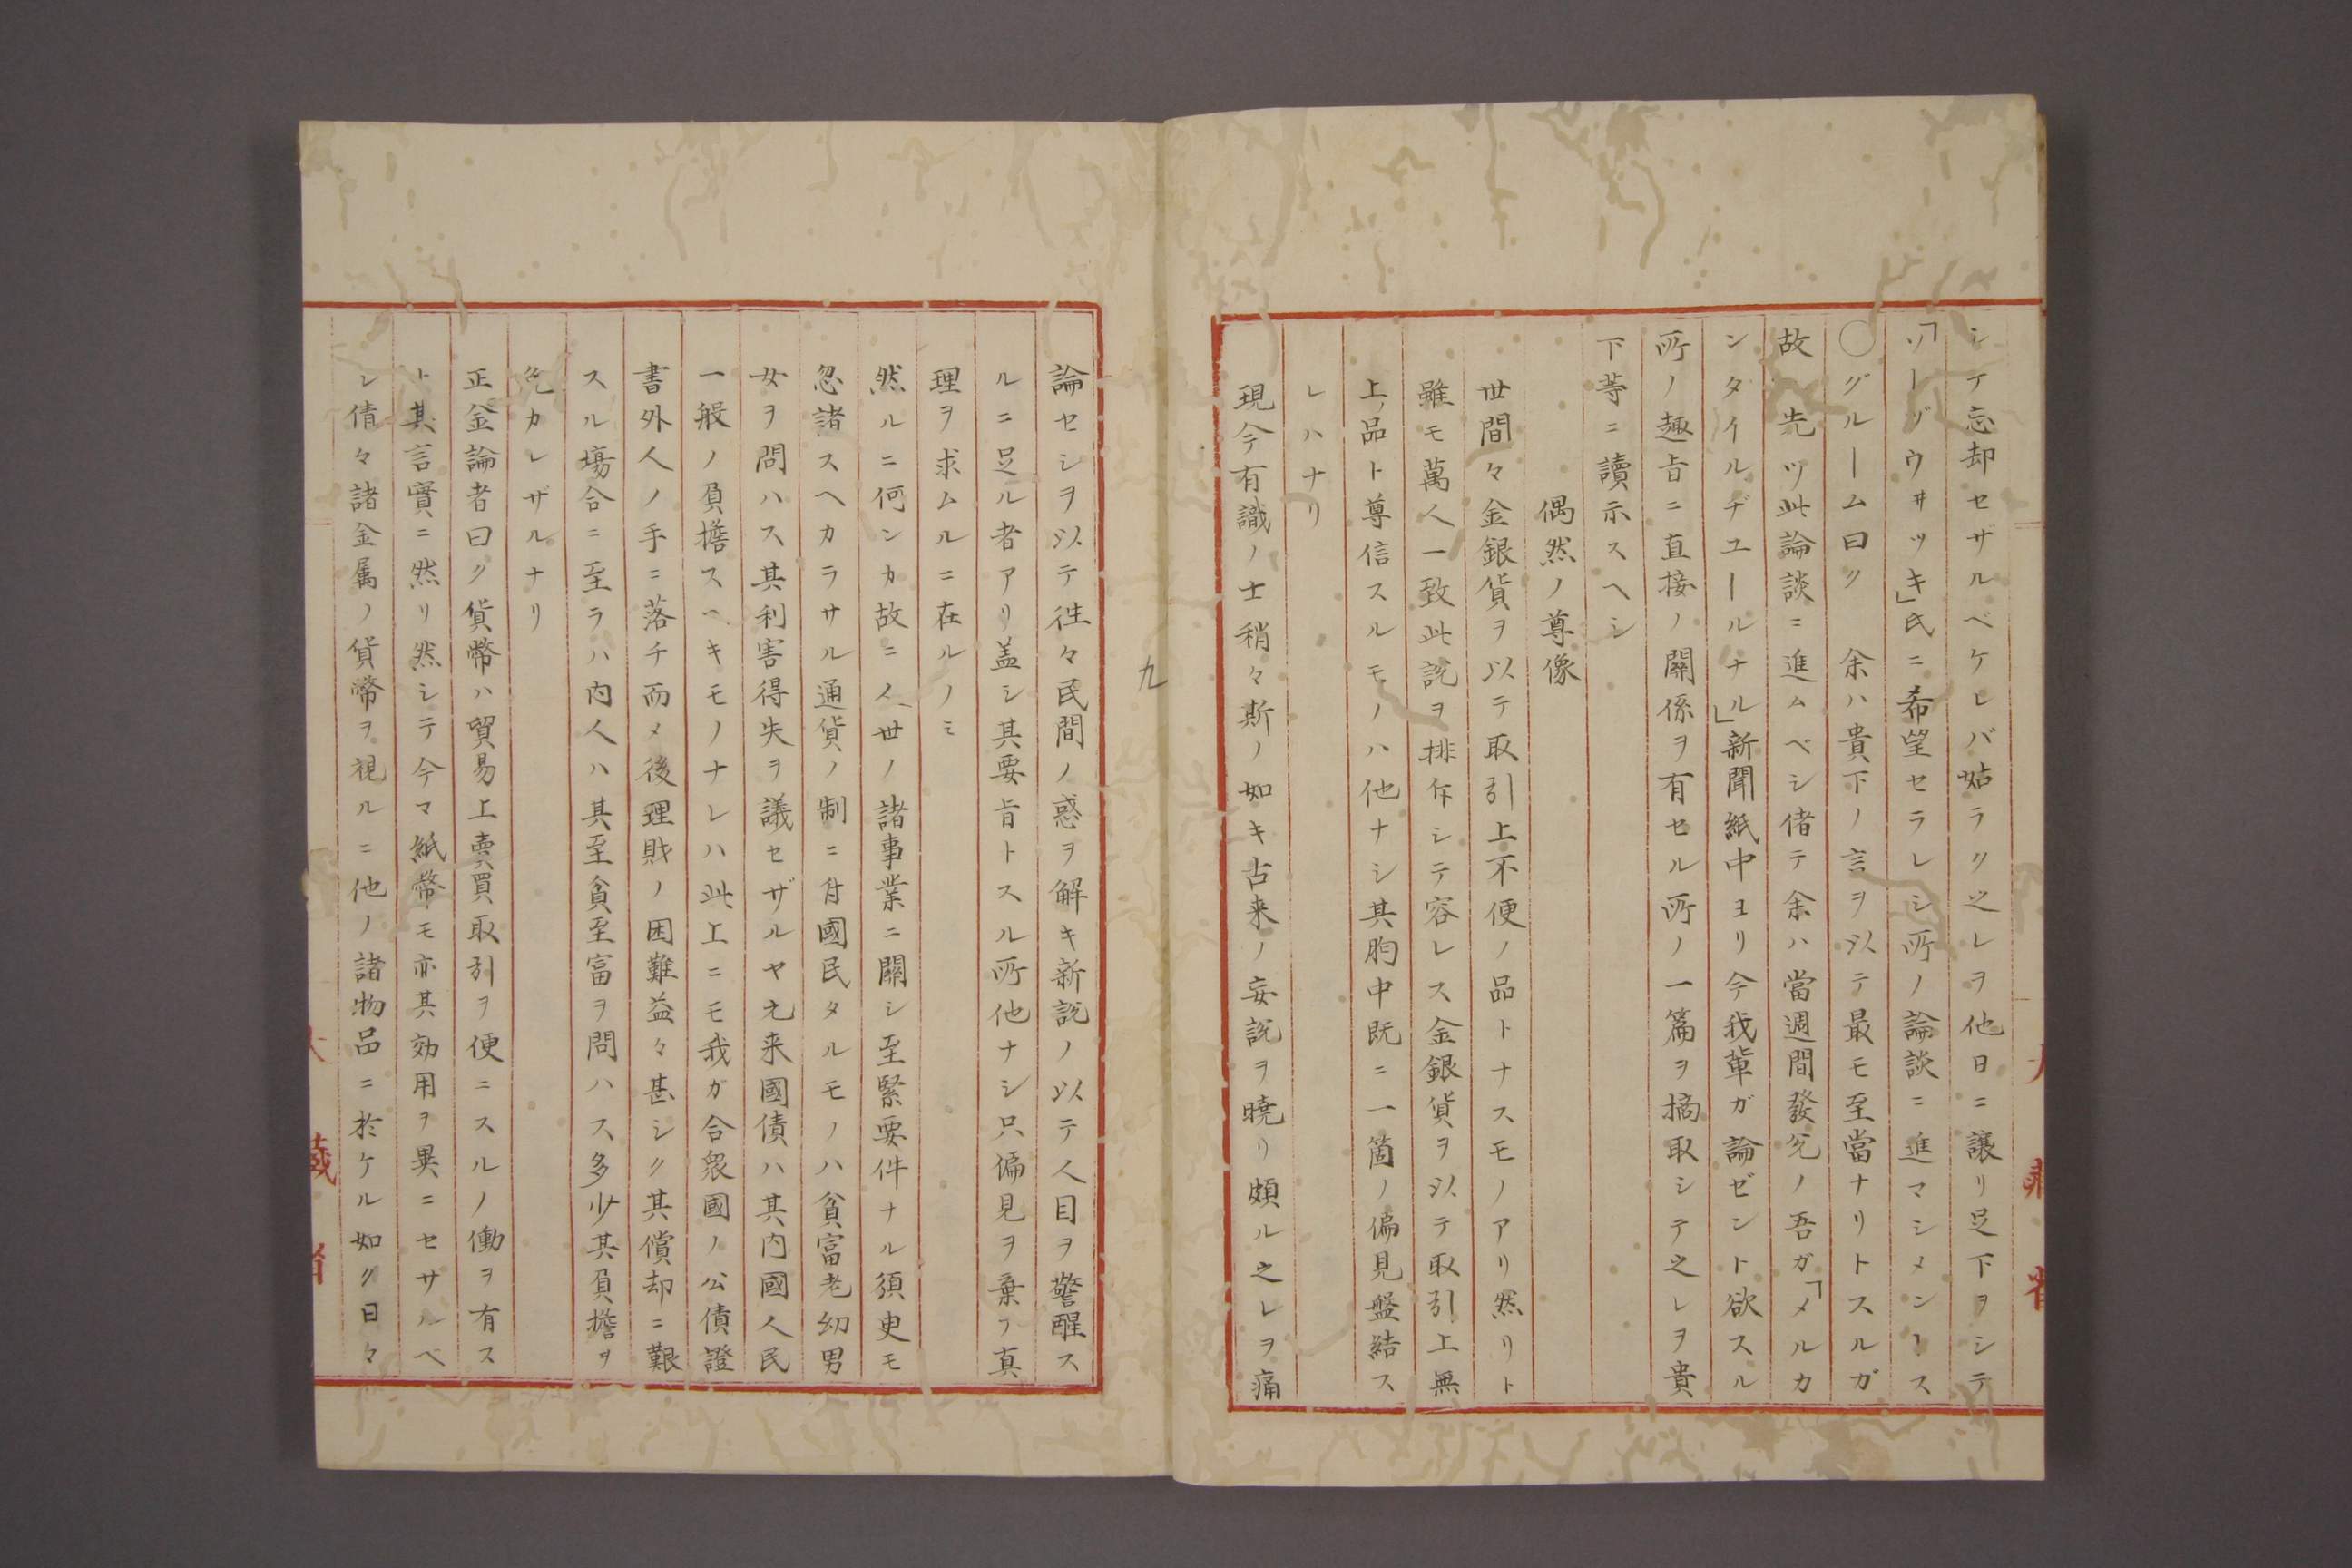 シテ忘却セザルベケレバ姑ラク之レヲ他日ニ讓リ足下ヲシテ
「ソーヅウヰツキ」氏ニ希望セラレシ所ノ論談ニ進マシメンース
〇グルーム曰ク　余ハ貴下ノ言ヲ以テ最モ至當ナリトスルガ
故　先ツ此論談ニ進ムベシ偖テ余ハ當週間發兌ノ吾ガ「メルカ
ンタイルヂユールナル」新聞紙中ヨリ今我輩ガ論ゼント欲スル
所ノ趣旨ニ直接ノ關係ヲ有セル所ノ一篇ヲ摘取シテ之レヲ貴
下等ニ讀示スヘシ
偶然ノ尊像
世間々金銀貨ヲ以テ取引上不便ノ品トナスモノアリ然リト
雖モ萬人一致此説ヲ排斥シテ容レス金銀貨ヲ以テ取引上無
上ノ品ト尊信スルモノハ他ナシ其胸中既ニ一箇ノ偏見盤結ス
レハナリ
現今有識ノ士稍々斯ノ如キ古来ノ妄説ヲ曉リ頗ル之レヲ痛
九
論セシヲ以テ徃々民間ノ惑ヲ解キ新説ノ以テ人目ヲ警醒ス
ルニ足ル者アリ盖シ其要旨トスル所他ナシ只偏見ヲ棄テ真
理ヲ求ムルニ在ルノミ
然ルニ何ンカ故ニ人世ノ諸事業ニ關シ至緊要件ナル須臾モ
忽諸スヘカラサル通貨ノ制ニ付國民タルモノハ貧富老幼男
女ヲ問ハス其利害得失ヲ議セザルヤ元来國債ハ其内國人民
一般ノ負擔スヘキモノナレハ此上ニモ我ガ合衆國ノ公債證
書外人ノ手ニ落チ而メ後理財ノ困難益々甚シク其償却ニ艱
スル塲合ニ至ラハ内人ハ其至貧至富ヲ問ハス多少其負擔ヲ
免カレザルナリ
正金論者曰ク貨幣ハ貿易上賣買取引ヲ便ニスルノ働ヲ有ス
ト其言實ニ然リ然シテ今マ紙幣モ亦其効用ヲ異ニセサルベ
シ倩々諸金属ノ貨幣ヲ視ルニ他ノ諸物品ニ於ケル如ク日々
大藏省